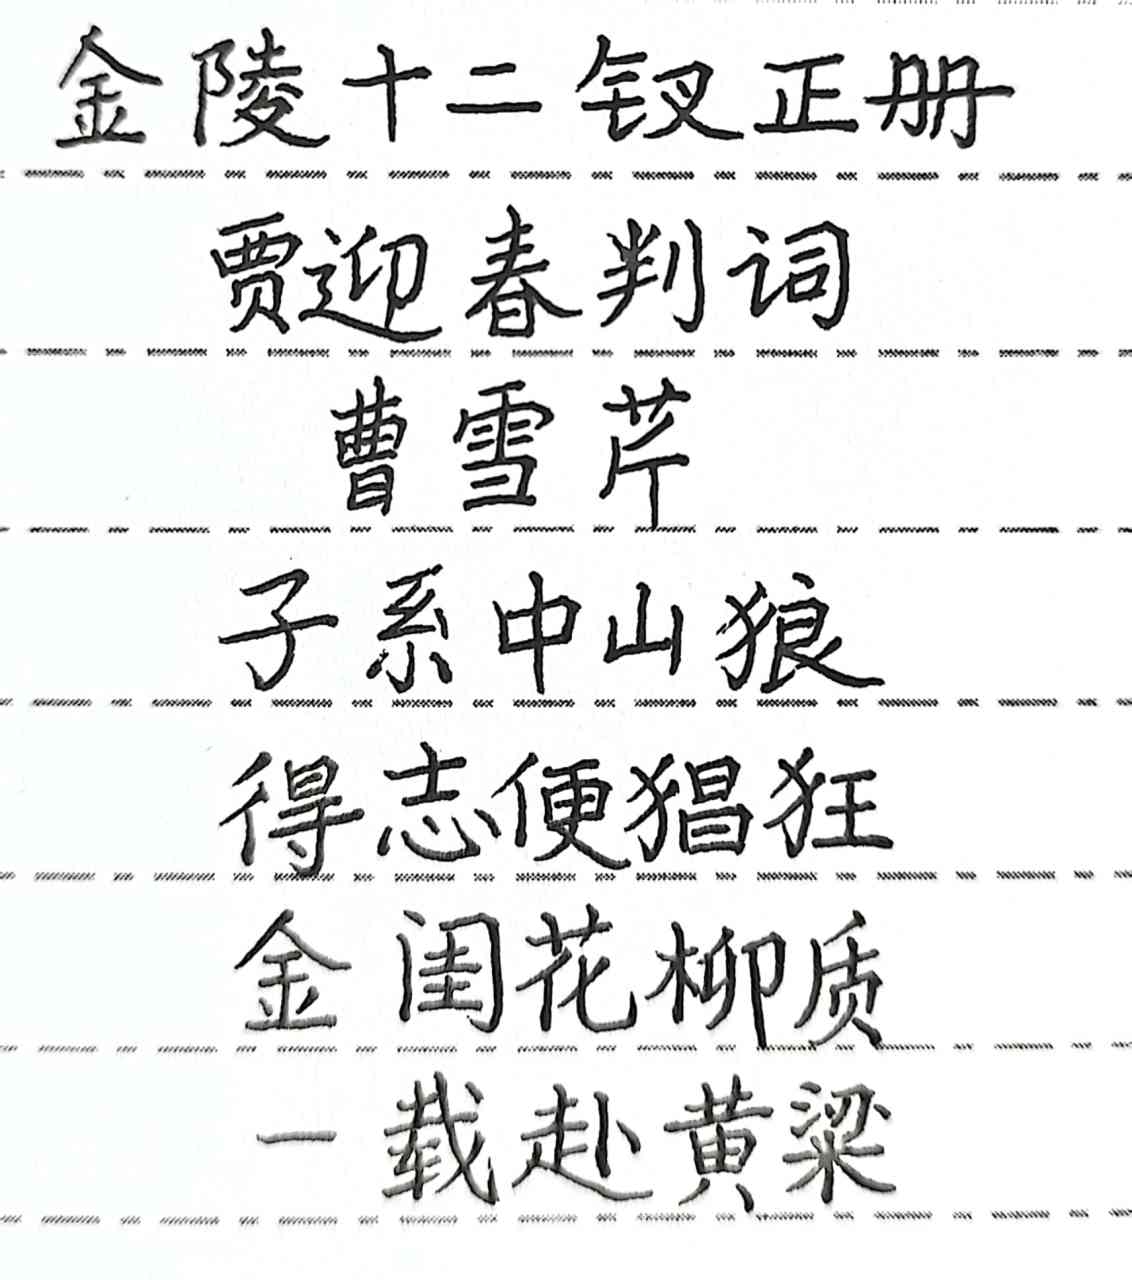 金陵十二钗正册
贾迎春判词
曹雪芹
子系中山狼
得志便猖狂
金闺花柳质
一载赴黄粱